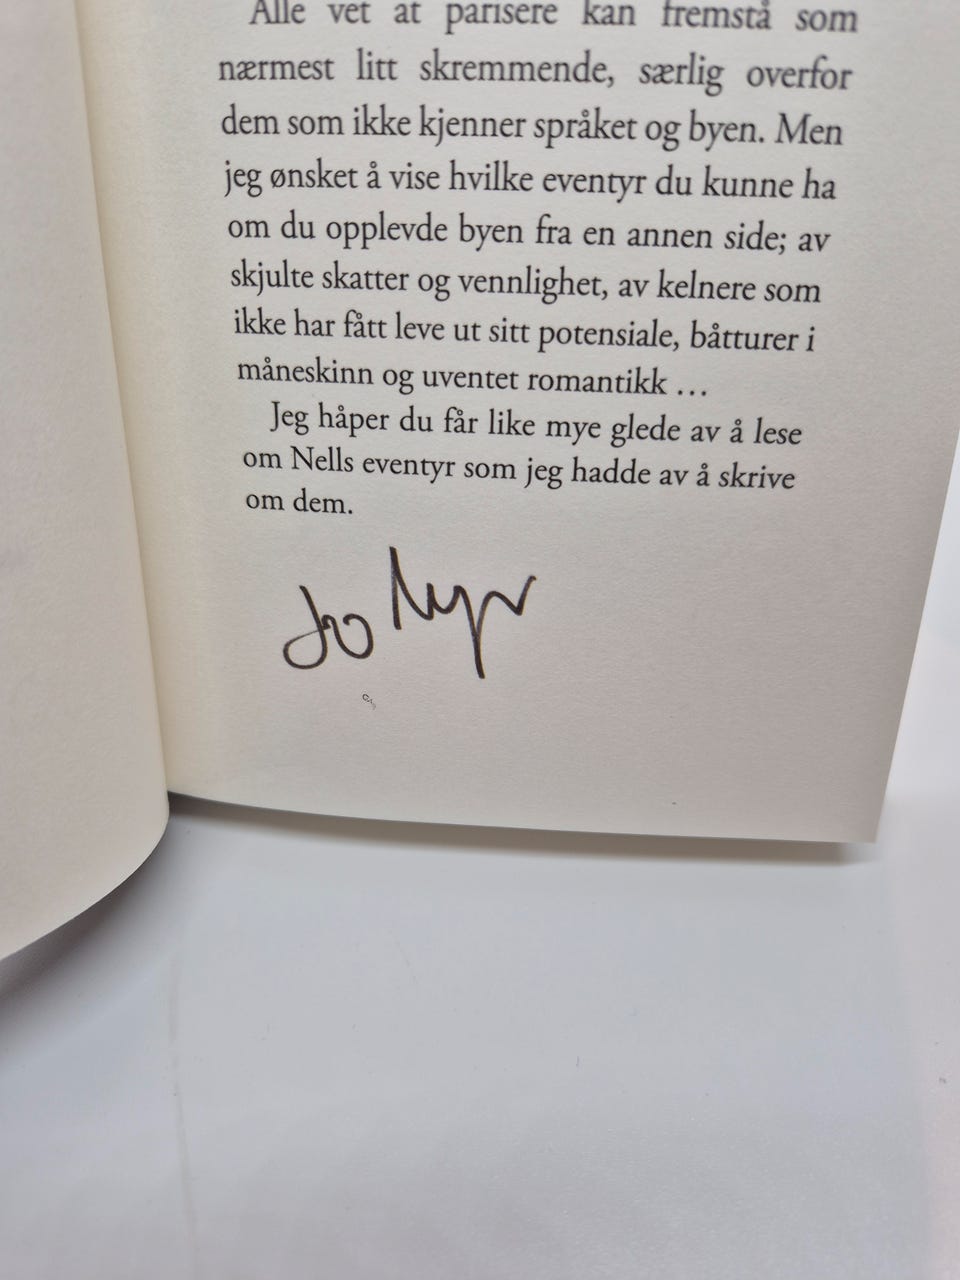 Alle vet at parisere kan fremstå som
nærmest litt skremmende, særlig overfor
dem som ikke kjenner språket og byen. Men
jeg ønsket å vise hvilke eventyr du kunne ha
om du opplevde byen fra en annen side; av
skjulte skatter og vennlighet, av kelnere som
ikke har fått leve ut sitt potensiale, båtturer i
måneskinn og uventet romantikk …
Jeg håper du får like mye glede av å lese
om Nells eventyr som jeg hadde av å skrive
om dem.
Jo